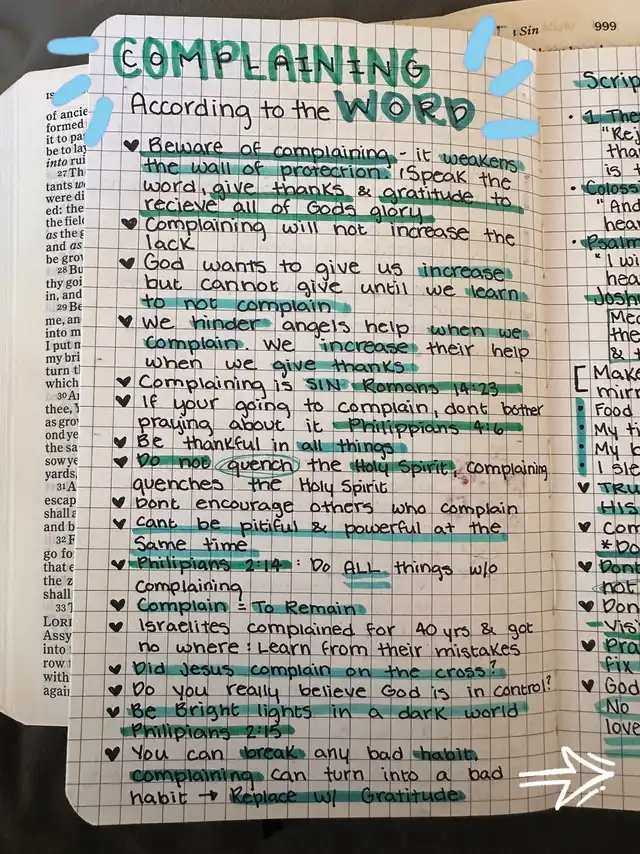 COMPLAINING
According to the WORD
♥ Beware of complaining - it weakens
the wall of protection. Speak the
word, give thanks & gratitude to
recieve all of Gods glory
♥ Complaining will not increase the
lack
♥ God wants to give us increase
but cannot give until we learn
to not complain
♥ We hinder angels help when we
complain. We increase their help
when we give thanks
♥ Complaining is SIN Romans 14:23
♥ If your going to complain, dont bother
praying about it Philippians 4:6
♥ Be thankful in all things
♥ Do not quench the Holy Spirit, complaining
quenches the Holy Spirit
♥ Dont encourage others who complain
♥ Cant be pitiful & powerful at the
same time
♥ Philipians 2:14 : Do ALL things w/o
complaining
♥ Complain = To Remain
♥ Israelites complained for 40 yrs & got
no where : Learn from their mistakes
♥ Did Jesus complain on the cross?
♥ Do you really believe God is in control?
♥ Be Bright lights in a dark world
Philipians 2:15
♥ You can break any bad habit
complaining can turn into a bad
habit → Replace w/ Gratitude
Sin
999
Scrip
• 1 The
"Rej
tha
is t
• Coloss
"And
hear
• Psalm
"I wi
hea
Josh
Med
the
& t
[ Make
mirr
• Food
• My ti
• My b
• I sle
♥ TRU
HIS
♥ Com
*Do
♥ Dont
not
♥ Don
-Vis
♥ Pra
fix
♥ God
No
love
of ancie
formed
it to pa
be to lay
into rui
27 The
tants w
were di
ed: the
the field
as the g
and as
be grow
28 Bu
thy goi
in, and
29 Be
me, an
into m
I put n
my bri
turn t
which
30 A
thee, Y
as grow
ond ye
the sa
sow ye
yards,
31 A
escap
shall a
and b
32 F
go fo
that e
the z
shall
33 T
LORD
Assy
into
row
with
again